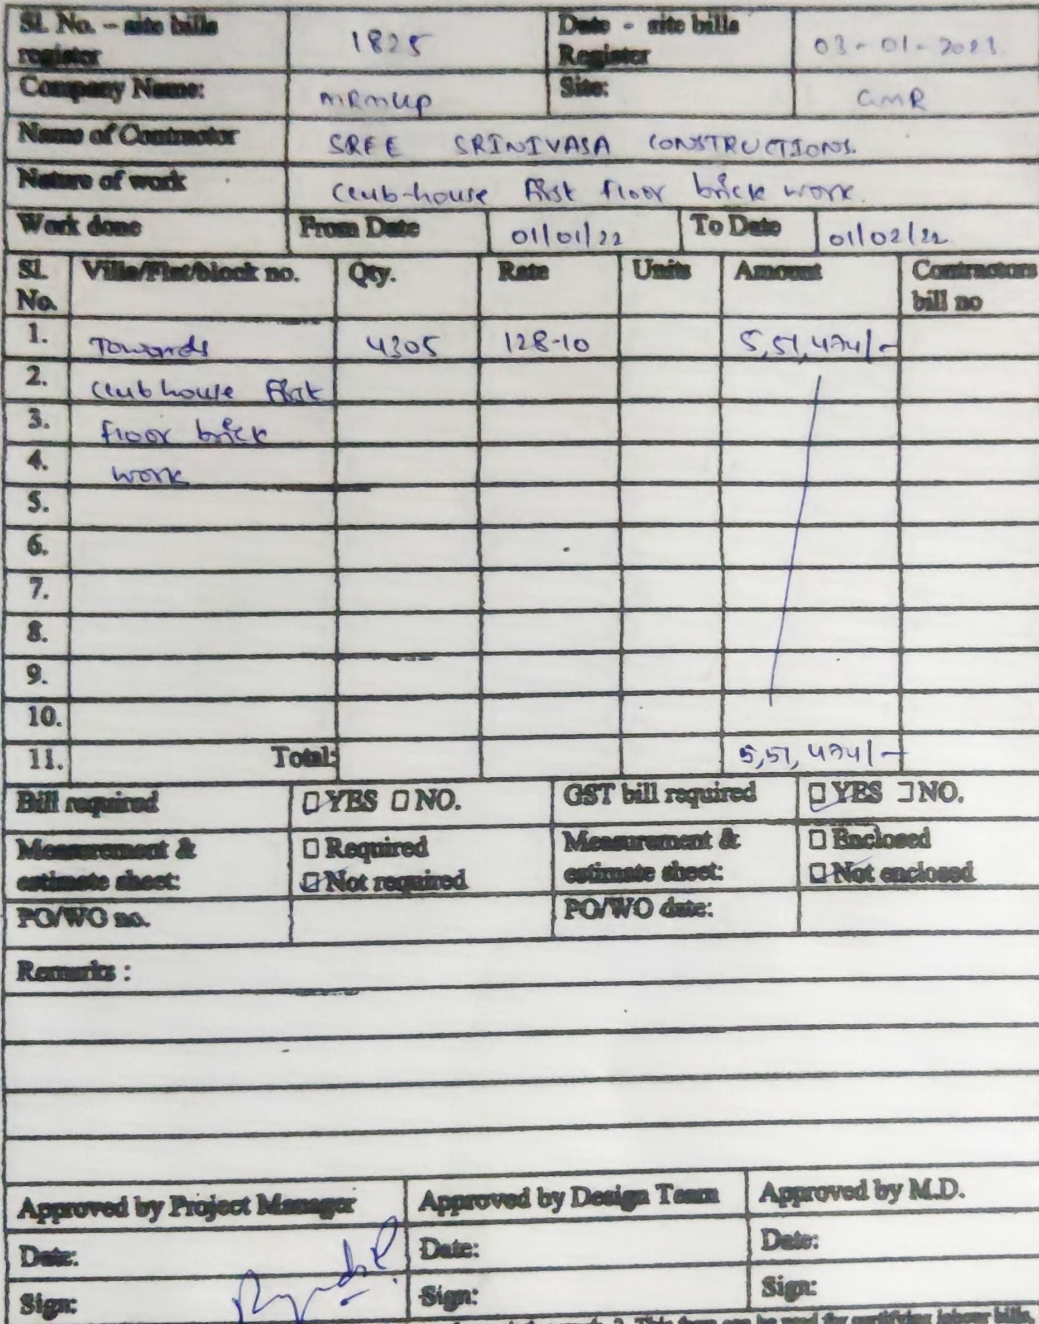 Sl. No. – site bills register 1825 Date - site bills Register 03-01-2023
Company Name: MRMUP Site: GMR
Name of Contractor SREE SRINIVASA CONSTRUCTIONS.
Nature of work Club-house First Floor brick work.
Work done From Date 01/01/22 To Date 01/02/22
Sl. No. Villa/Flat/block no. Qty. Rate Units Amount Contractors bill no
1. Towards 4305 128-10 5,51,474/-
2. Club house First
3. Floor brick
4. work
5.
6.
7.
8.
9.
10.
11. Total: 5,51,474/-
Bill required YES NO. GST bill required YES NO.
Measurement & estimate sheet: Required Not required Measurement & estimate sheet: Enclosed Not enclosed
PO/WO no. PO/WO date:
Remarks :
Approved by Project Manager Approved by Design Team Approved by M.D.
Date: Date: Date:
Sign: Sign: Sign:
2. This form can be used for certifying labour bills,